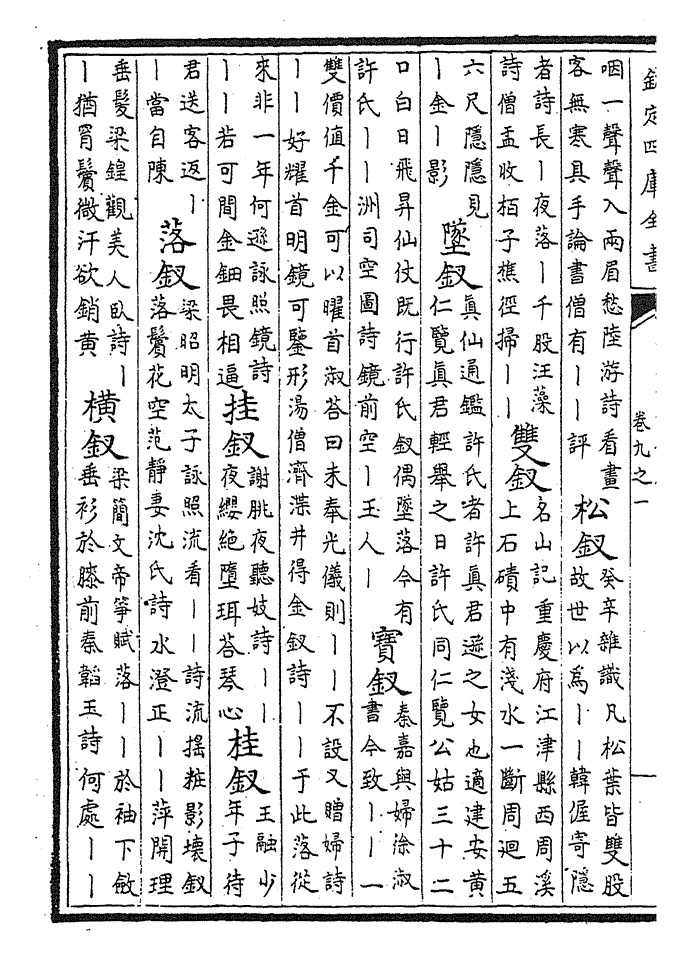 欽定四庫全書
卷九之一
咽一聲聲入兩眉愁陸游詩看畫
客無寒具手論書僧有丨丨評
松釵
癸辛雜識凡松葉皆雙股
故世以為丨丨韓偓寄隱
者詩長丨夜落丨千股汪藻
詩僧盂收栢子樵徑掃丨丨
雙釵
名山記重慶府江津縣西周溪
上石磧中有淺水一斷周迴五
六尺隱隱見
丨金丨影
墜釵
真仙通鑑許氏者許真君遜之女也適建安黃
仁覽真君輕舉之日許氏同仁覽公姑三十二
口白日飛昇仙仗既行許氏釵偶墜落今有
許氏丨丨洲司空圖詩鏡前空丨玉人丨
寶釵
秦嘉與婦徐淑
書今致丨丨一
雙價值千金可以曜首淑荅曰未奉光儀則丨丨不設又贈婦詩
丨丨好耀首明鏡可鑒形湯僧濟渫井得金釵詩丨丨于此落從
來非一年何遜詠照鏡詩
丨丨若可間金鈿畏相逼
挂釵
謝朓夜聽妓詩丨丨
夜纓絕墮珥荅琴心
桂釵
王融少
年子待
君送客返丨
丨當自陳
落釵
梁昭明太子詠照流看丨丨詩流搖粧影壞釵
落鬢花空范靜妻沈氏詩水澄正丨丨萍開理
垂髮梁鍠觀美人臥詩丨
丨猶罥鬢微汗欲銷黃
橫釵
梁簡文帝箏賦落丨丨於袖下斂
垂衫於膝前秦韜玉詩何處丨丨